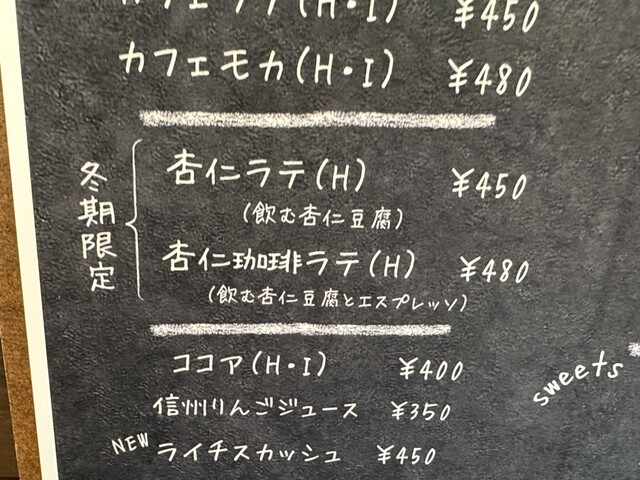 カフェラテ(H・I) ¥450
カフェモカ(H・I) ¥480
冬期限定
杏仁ラテ(H) ¥450
(飲む杏仁豆腐)
杏仁珈琲ラテ(H) ¥480
(飲む杏仁豆腐とエスプレッソ)
ココア(H・I) ¥400
信州りんごジュース ¥350
NEW ライチスカッシュ ¥450
sweets